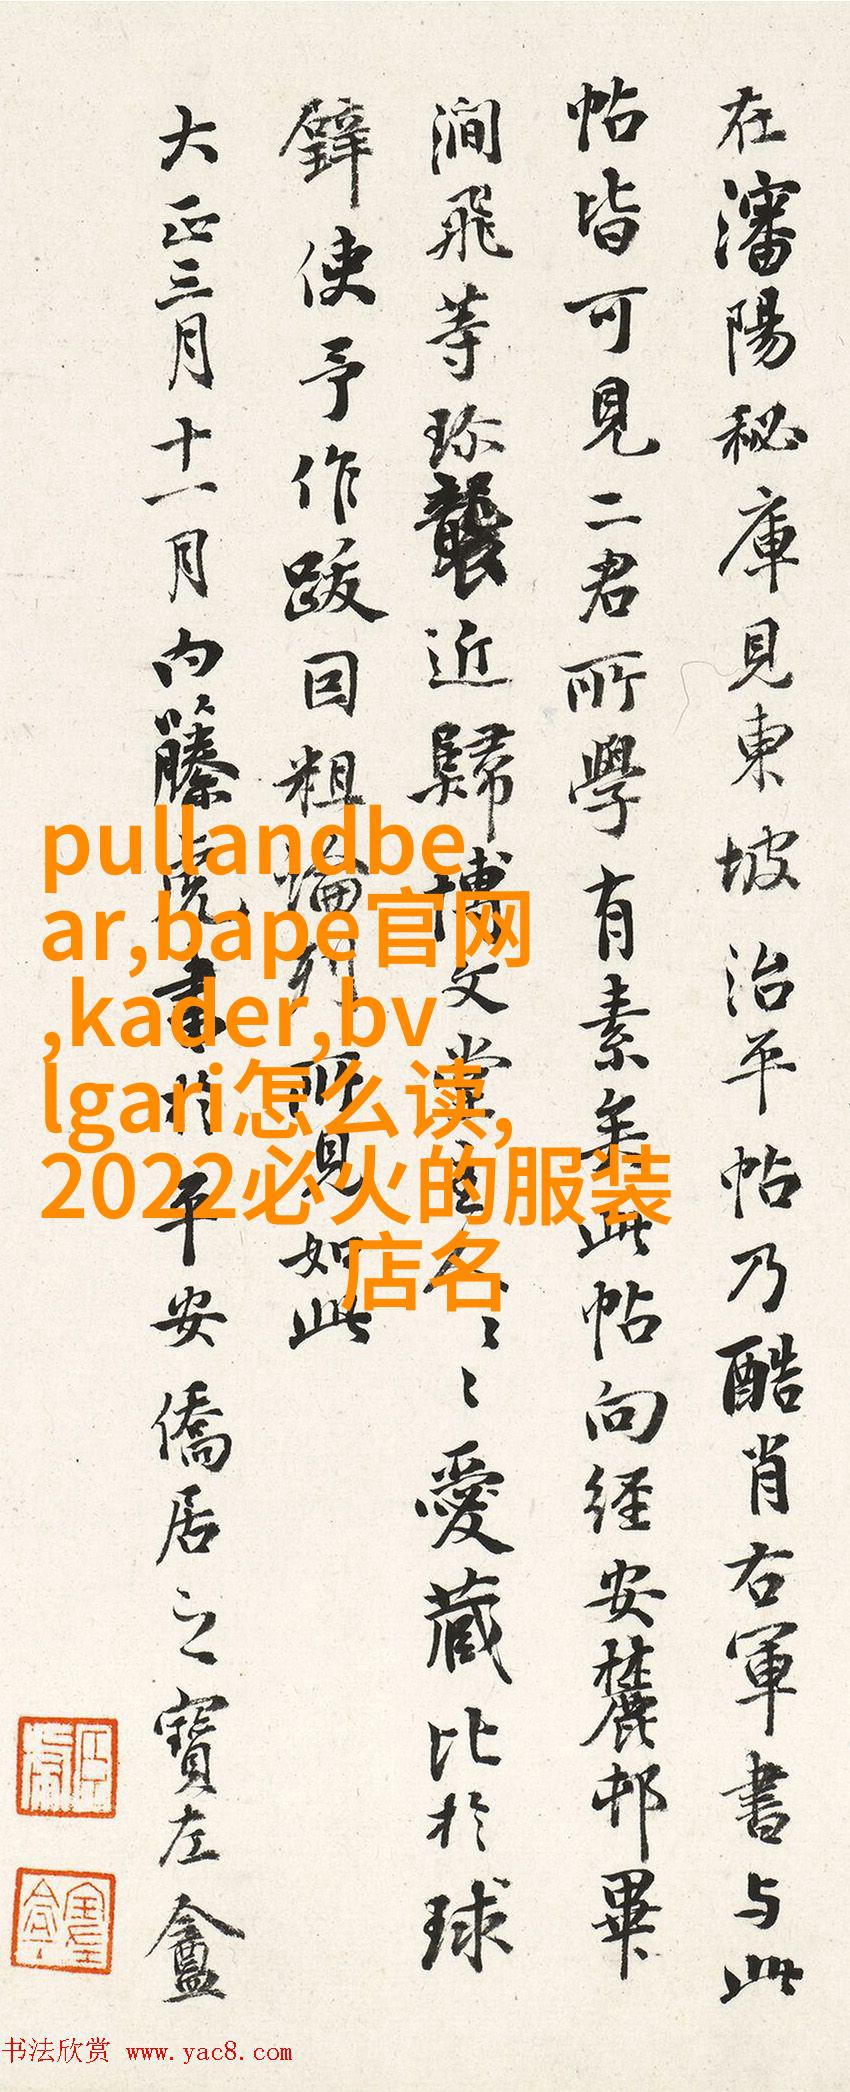 在瀋陽秘庫見東坡治平帖乃酷肖右軍書与此
帖皆可見二君所學有素矣此帖向経安麓邨畢
澗飛等珎襲近歸博文堂主人〻〻愛蔵比於球
璧使予作跋因粗論列所見如此
大正三月十一月内藤虎書於平安僑居之寶左盦
pullandbe
ar,bape官网
,kader,bv
lgari怎么读,
2022必火的服装
店名
书法欣赏 www.yac8.com